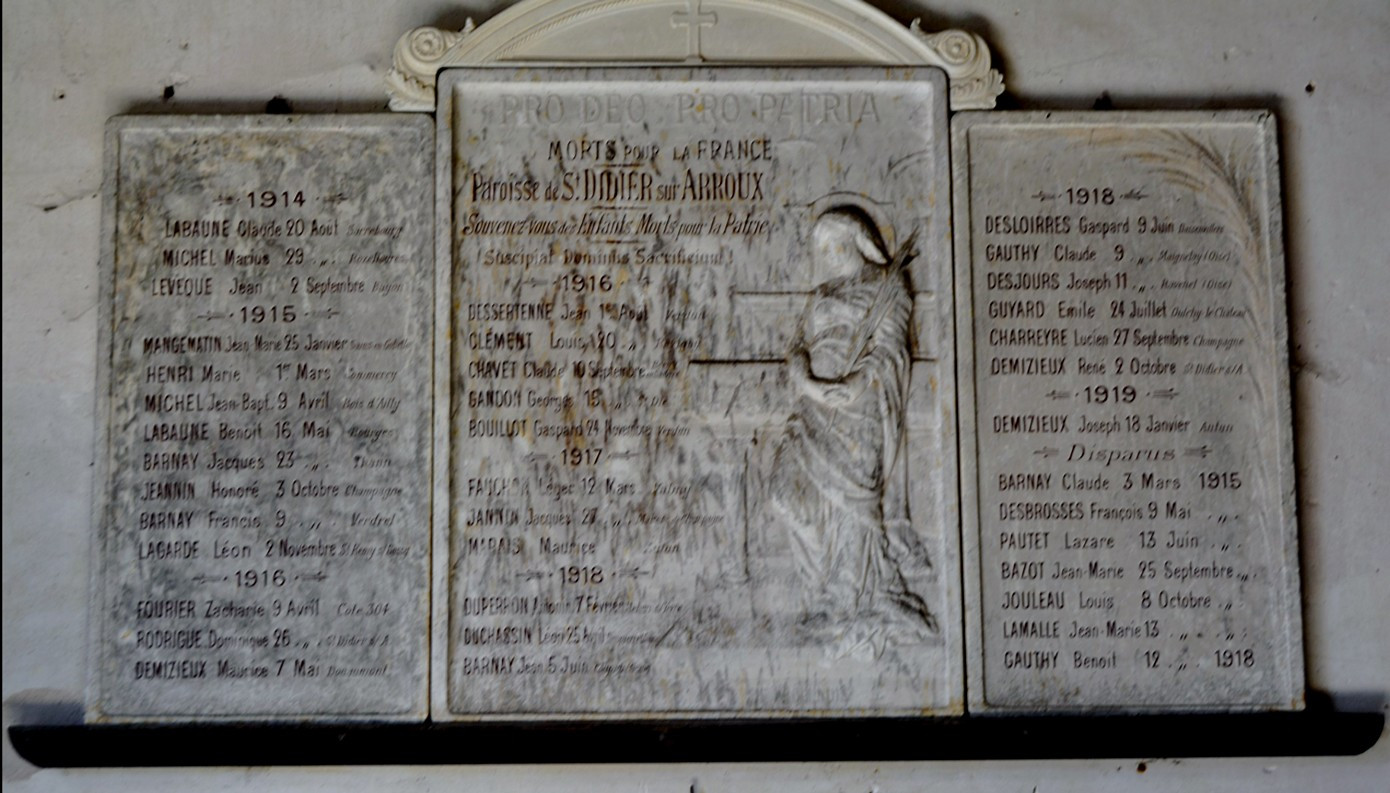 PRO DEO PRO PATRIA
MORTS POUR LA FRANCE
Paroisse de St DIDIER sur ARROUX
Souvenez-vous des Enfants Morts pour la Patrie
Suscipiat Dominus Sacrificium
1914
LABAUNE Claude 20 Août Sarrebourg
MICHEL Marius 29 „
LEVEQUE Jean 2 Septembre
1915
MANGEMATIN Jean-Marie 25 Janvier
HENRI Marie 1er Mars Commercy
MICHEL Jean-Bapt. 9 Avril Bois d'Ailly
LABAUNE Benoit 16 Mai Bourges
BARNAY Jacques 23 „ Thann
JEANNIN Honoré 3 Octobre Champagne
BARNAY Francis 9 „ Verdrel
LAGARDE Léon 2 Novembre
1916
FOURIER Zacharie 9 Avril Cote 304
RODRIGUE Dominique 26 „ St Didier s/A
DEMIZIEUX Maurice 7 Mai Douaumont
1916
DESSERTENNE Jean 1er Août Verdun
CLÉMENT Louis 20 „
CHAVET Claude 10 Septembre
GANDON Georges 18 „
BOUILLOT Gaspard 24 Novembre Verdun
1917
FAUCHON Léger 12 Mars
JANNIN Jacques 27 „
MARAIS Maurice
1918
DUPERRON 7 Février
DUCHASSIN Léon 25 Avril
BARNAY Jean 5 Juin
1918
DESLOIRRES Gaspard 9 Juin
GAUTHY Claude 9 „ Maignelay (Oise)
DESJOURS Joseph 11 „ (Oise)
GUYARD Emile 24 Juillet Oulchy le Château
CHARREYRE Lucien 27 Septembre Champagne
DEMIZIEUX René 2 Octobre St Didier s/A
1919
DEMIZIEUX Joseph 18 Janvier Autun
Disparus
BARNAY Claude 3 Mars 1915
DESBROSSES François 9 Mai „
PAUTET Lazare 13 Juin „
BAZOT Jean-Marie 25 Septembre „
JOULEAU Louis 8 Octobre „
LAMALLE Jean-Marie 13 „ „
GAUTHY Benoit 12 „ 1918